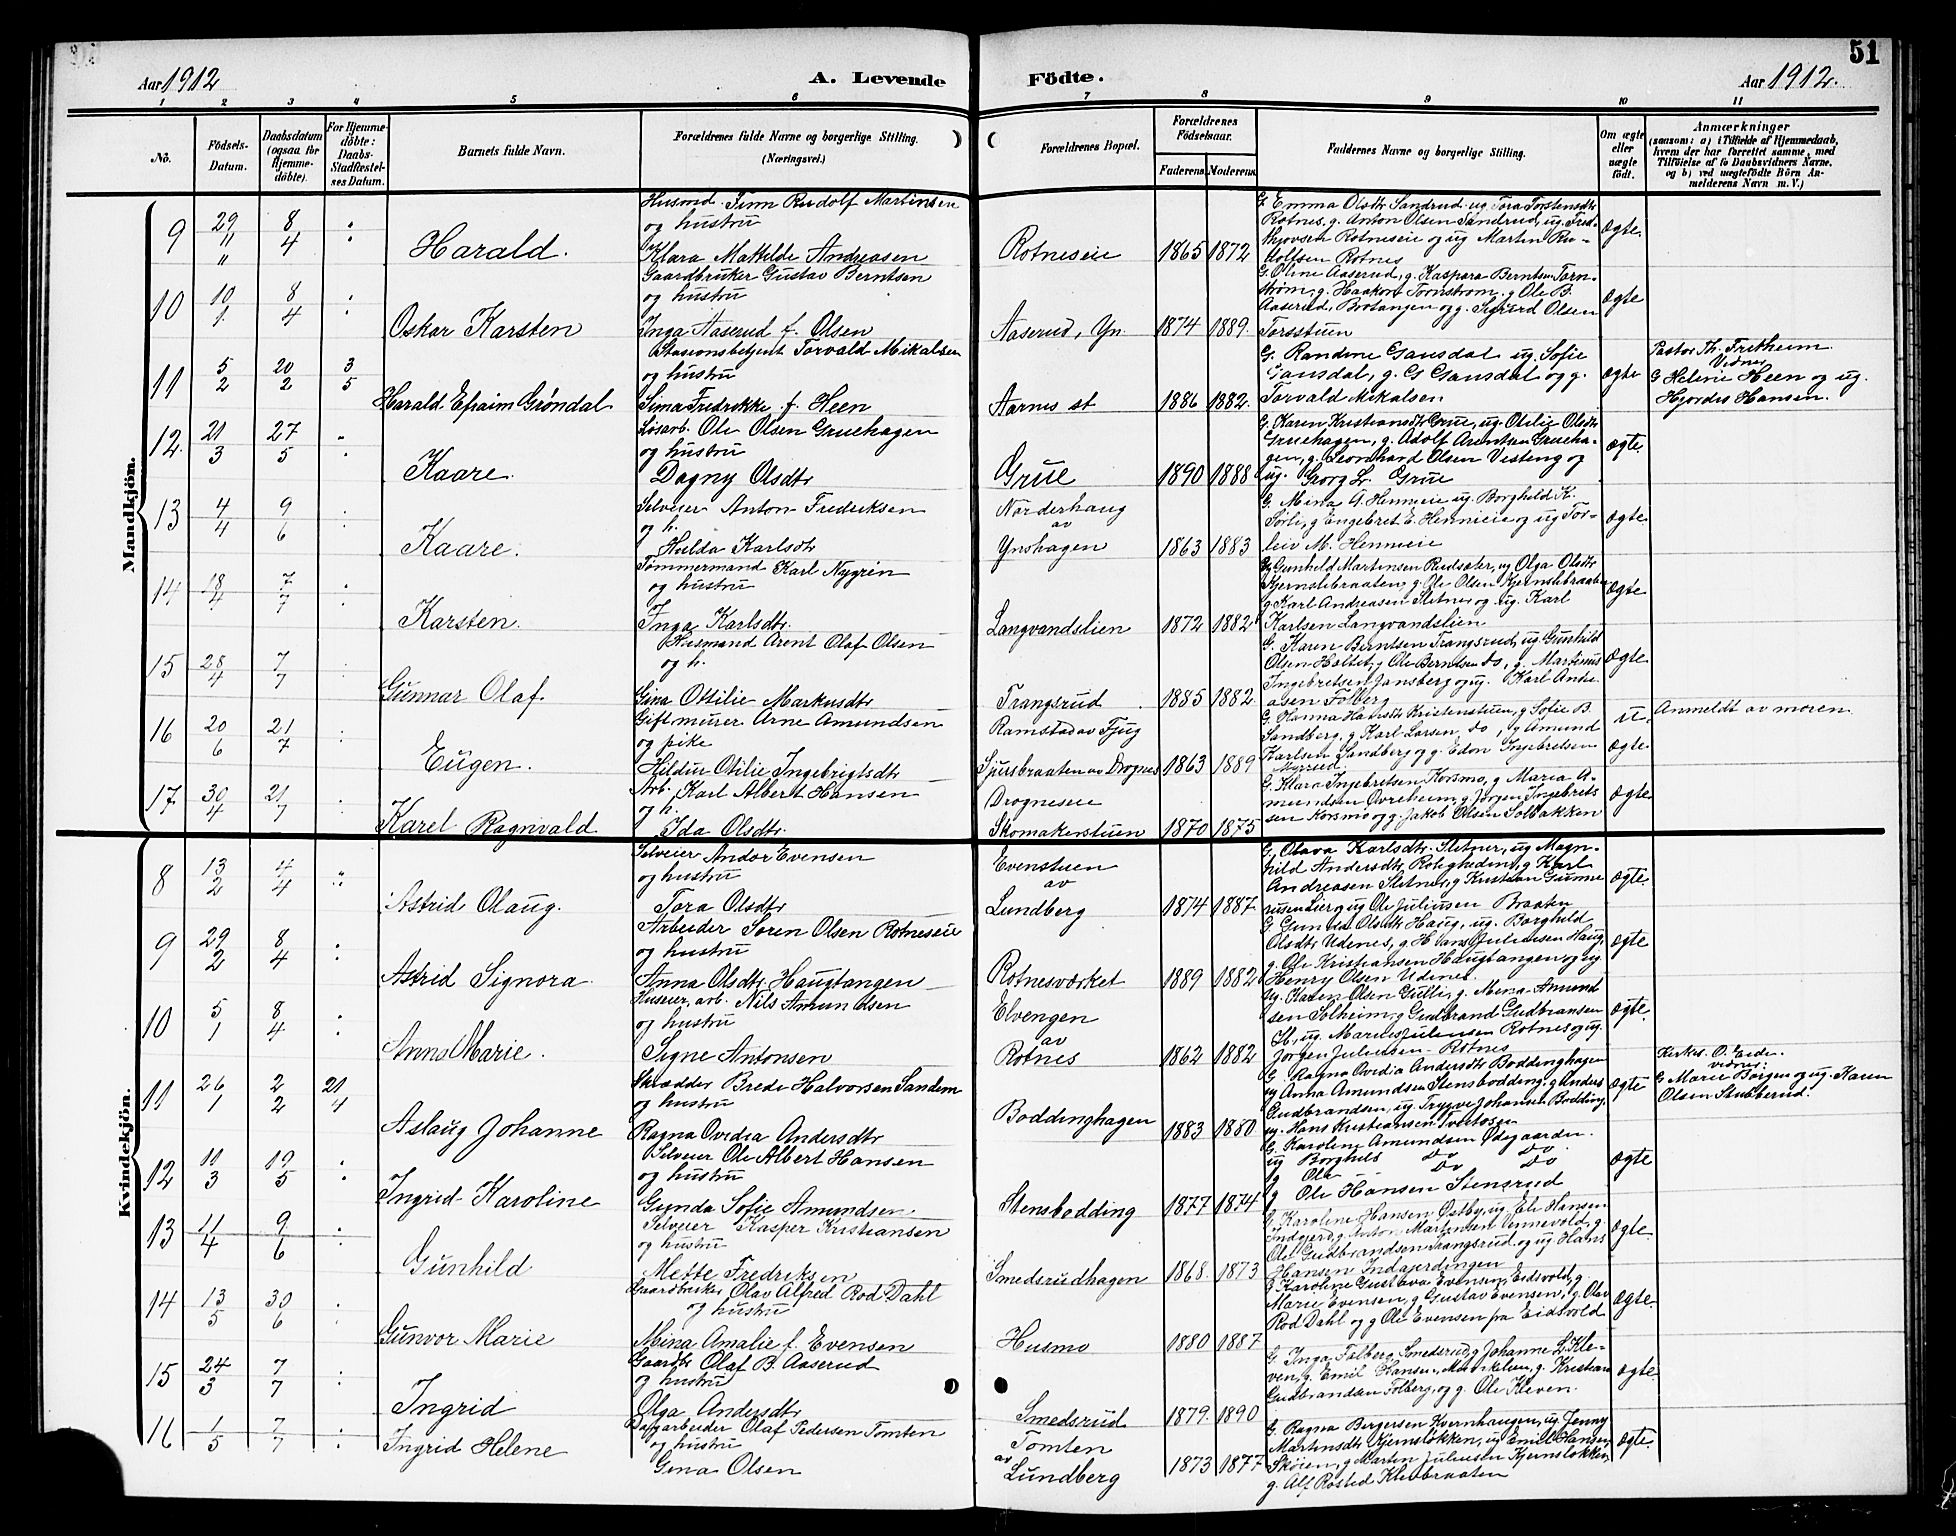 51
Aar 1912 A. Levende Födte. Aar 1912.
1 2 3 4 5 6 7 8 9 10 11
No. Födsels-Datum. Daabsdatum (ogsaa for Hjemme-döbte). For Hjemme-döbte: Daabs-Stadfæstel-ses Datum. Barnets fulde Navn. Forældrenes fulde Navne og borgerlige Stilling. (Næringsvei.) Forældrenes Bopæl. Forældrenes Födselsaar. Faderens. Moderens. Faddernes Navne og borgerlige Stilling. Om ægte eller uægte födt. Anmærkninger
(saasom: a) i Tilfælde af Hjemmedaab,
hvem der har forrettet samme, med
Tilföielse af to Daabsvidners Navne,
og b) ved uægtefödte Börn An-
melderens Navn m. V.)
Mandkjön.
9 29/" 8/4 Harald. Husmd. Finn Rudolf Martinsen
og hustru
Klara Matilde Andreasen
Rotneseie 1865 1872
G. Emma Olsdtr Sandrud, ug. Tora Torstensdtr
Rotnes, g. Anton Olsen Sandrud, ug. Fred-
thjovsen Rotneseie og ug Martin Ru-
dolfsen Rotnes
ægte.
10 10/1 8/4 Oskar Karsten Gaardbruker Gustav Berntsen
og hustru
Inga Aaserud f. Olsen
Aaserud, Yn 1874 1889.
G. Oline Aaserud, g. Kaspara Berntsen Torn-
strøm, g. Haakon Tornstrøm, g Ole B.
Aaserud, Brotangen og g. Sigurd Olsen
Torsstuen
ægte
11 5/2 20/2 3/5 Harald Efraim Grøndal Stasionsbetjent Torvald Mikalsen
og hustru
Sima Fredrikke f. Heen
Aarnes st 1886 1882.
G. Randine Gansdal ug. Sofie
Gansdal, g. G Gansdal og g.
Torvald Mikalsen
ægte
Pastor Th. Fretheim.
Vidner
G Heline Heen og ug.
Hjørdis Hansen.
12. 21/3 27/5 Kaare. Løsarb. Ole Olsen Gruehagen
og hustru
Dagny Olsdtr
Grue 1890 1888
G. Karen Kristiansdtr Grue, ug. Otilie Olsdtr
Gruehagen, g. Adolf Arntsen Grueha-
gen, g. Leonhard Olsen Vesteng og
ug. Georg L. Grue
ægte.
13 4/4 9/6 Kaare. Selveier Anton Fredriksen
og h.
Hulda Karlsdtr
Norderhaug
av
Ynshagen 1863 1883
G. Mina A. Hennieie ug. Borghild K.
Sørli, g Engebret E. Hennieie og ug Tor-
leiv M. Hennieie
ægte.
14 18/4 7/7 Karsten. Tømmermand Karl Nygren
og hustru
Inga Karlsdtr.
Langvandslien 1872 1882
G. Gunhild Martinsen Rudsæter, ug Olga Olsdtr
Kjernslibraaten, g. Ole Olsen Kjernslibraaten
g. Karl Andreasen Sletner og ug. Karl
Karlsen Langvandslien
ægte
15 28/4 7/7 Gunnar Olaf. Husmand Arent Olaf Olsen
og h.
Gina Ottilie Markusdtr
Trangsrud 1885 1882.
G. Karen Berntsen Trangsrud, ug Gunhild
Olsen Holtet, g Ole Berntsen do, g. Martinus
Ingebretsen Jansberg og ug. Karl Andre-
asen Folberg
ægte.
16 20/6 21/7 Eugen. Gift murer Arne Amundsen
og pike
Hildur Otilie Ingebrigtsdtr
Ramstad av Fjug
Sjursbraaten av Drognes 1863 1889
G. Hanna Hansdtr Kristenstuen, g Sofie B.
Sandberg, g Karl Larsen do, g Amund
Karlsen Sandberg og g. Edon Ingebretsen
u.
ægte.
Anmeldt av moren
17 30/4 21/7 Karel Ragnvald Arb. Karl Albert Hansen
og h.
Ida Olsdtr.
Drogneseie
Skomakerstuen 1870 1875
G. Klara Ingebretsen Korsmo, g Maria A-
mundsen Øvreheim, g. Jørgen Ingebret-
sen Korsmo og g. Jakob Olsen Solbakken
ægte
Kvindekjön.
8 13/2 4/4 Astrid Olaug. Selveier Andor Evensen
og hustru
Tora Olsdtr
Evenstuen
av
Lundberg 1874 1887
G. Olava Karlsdtr. Sletner, ug Magn-
hild Andersdtr Roligheden, g Karl
Andreasen Sletner, g Kristian Gunne
riusen Lier og ug Ole Juliussen Braaten
ægte.
9 29/2 8/4 Astrid Signora. Arbeider Søren Olsen Rotneseie
og hustru
Anna Olsdtr. Haugtangen
Rotnesværket 1889 1882
G Gunda Olsdtr Haug, ug. Borghild
Olsdtr Udenes, g Hans Juliussen Haug,
g. Ole Kristiansen Haugtangen og ug
Henry Olsen Udnes.
ægte.
10 5/1 8/4 Anna Marie. Huseier, arb. Nils Amun Olsen
og hustru
Signe Antonsen
Elvengen
av
Rotnes 1862 1882
ug. Karen Olsen Gulli, g. Mina Amund
sen Solheim, g Gudbrand Gudbransen
H, ug. Marius Juliussen Rotnes og ug.
Jørgen Juliussen Rotnes
ægte.
11 26/1 2/2 21/4 Aslaug Johanne Skrædder Brede Halvorsen Sandem
og hustru
Ragna Ovidia Andersdtr
Boddinghagen 1883 1880
G Ragna Ovidia Andersdtr Boddinghagen
ug Anna Amundsen Stensbodding, g Anders
Gudbrandsen, ug. Trygve Johansen Bodding,
ug. Hans Kristiansen Tvertosen
ægte
Kirkes. O. Eide.
vidner:
G Marie Børgen og ug. Karen
Olsen Stubberud.
12 11/3 19/5 Ingrid Karoline Selveier Ole Albert Hansen
og hustru
Gunda Sofie Amundsen
Stensbodding 1877 1874
G. Karoline Amundsen Ødegaarden.
ug Borghild Do Do
g Ola Do Do
g Ole Hansen Stensrud
ægte
13 4/4 9/6 Gunhild Selveier Kasper Kristiansen
og hustru
Mette Fredriksen
Smedsrudhagen 1868. 1873
G. Karoline Hansen Østby, ug. Eli Hansen
Indgjerd, g Anton Martinsen Vennevold, g.
Ole Gudbrandsen Trangsrud og ug Hans
Hansen Indgjerdingen
ægte.
14 13/5 30/6 Gunvor Marie Gaardbruker Olav Alfred Rod Dahl
og hustru
Mina Amalie f. Evensen
Husmo 1880 1887
g Karoline Gustava Evensen, Eidsvold, g
Marie Evensen, g Gustav Evensen, g. Olav
Rod Dahl og g Ole Evensen fra Eidsvold
ægte.
15 24/3 7/7 Ingrid Gaardbr Olaf B. Aaserud
og hustru
Olga Andersdtr
Smedsrud 1879. 1890
G. Inga Folberg Smedsrud, g Johanne L. Kle-
ven, g. Emil Hansen, g. Kristian
Gudbrandsen Folberg, og g. Ole Kleven.
ægte.
16 1/5 7/7 Ingrid Helene Dagarbeider Olaf Pedersen Tomten
og hustru
Gina Olsen
Tomten
av
Lundberg 1873 1877
G. Ragna Bergersen Kvernhaugen, ug. Jenny
Martinsdtr Kjernsløkken, ug Emil Hansen,
Skøien, g Martin Juliussen Kjernsløkken
g. Alf Rosted Klevbraaten
ægte.